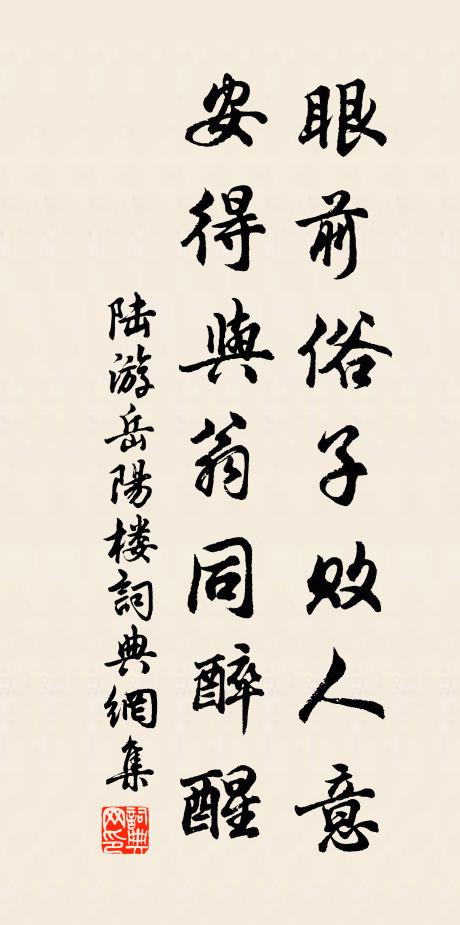 眼前俗子败人意
安得與翁同醉醒
陆游岳陽楼詞典網集
詞典
网印